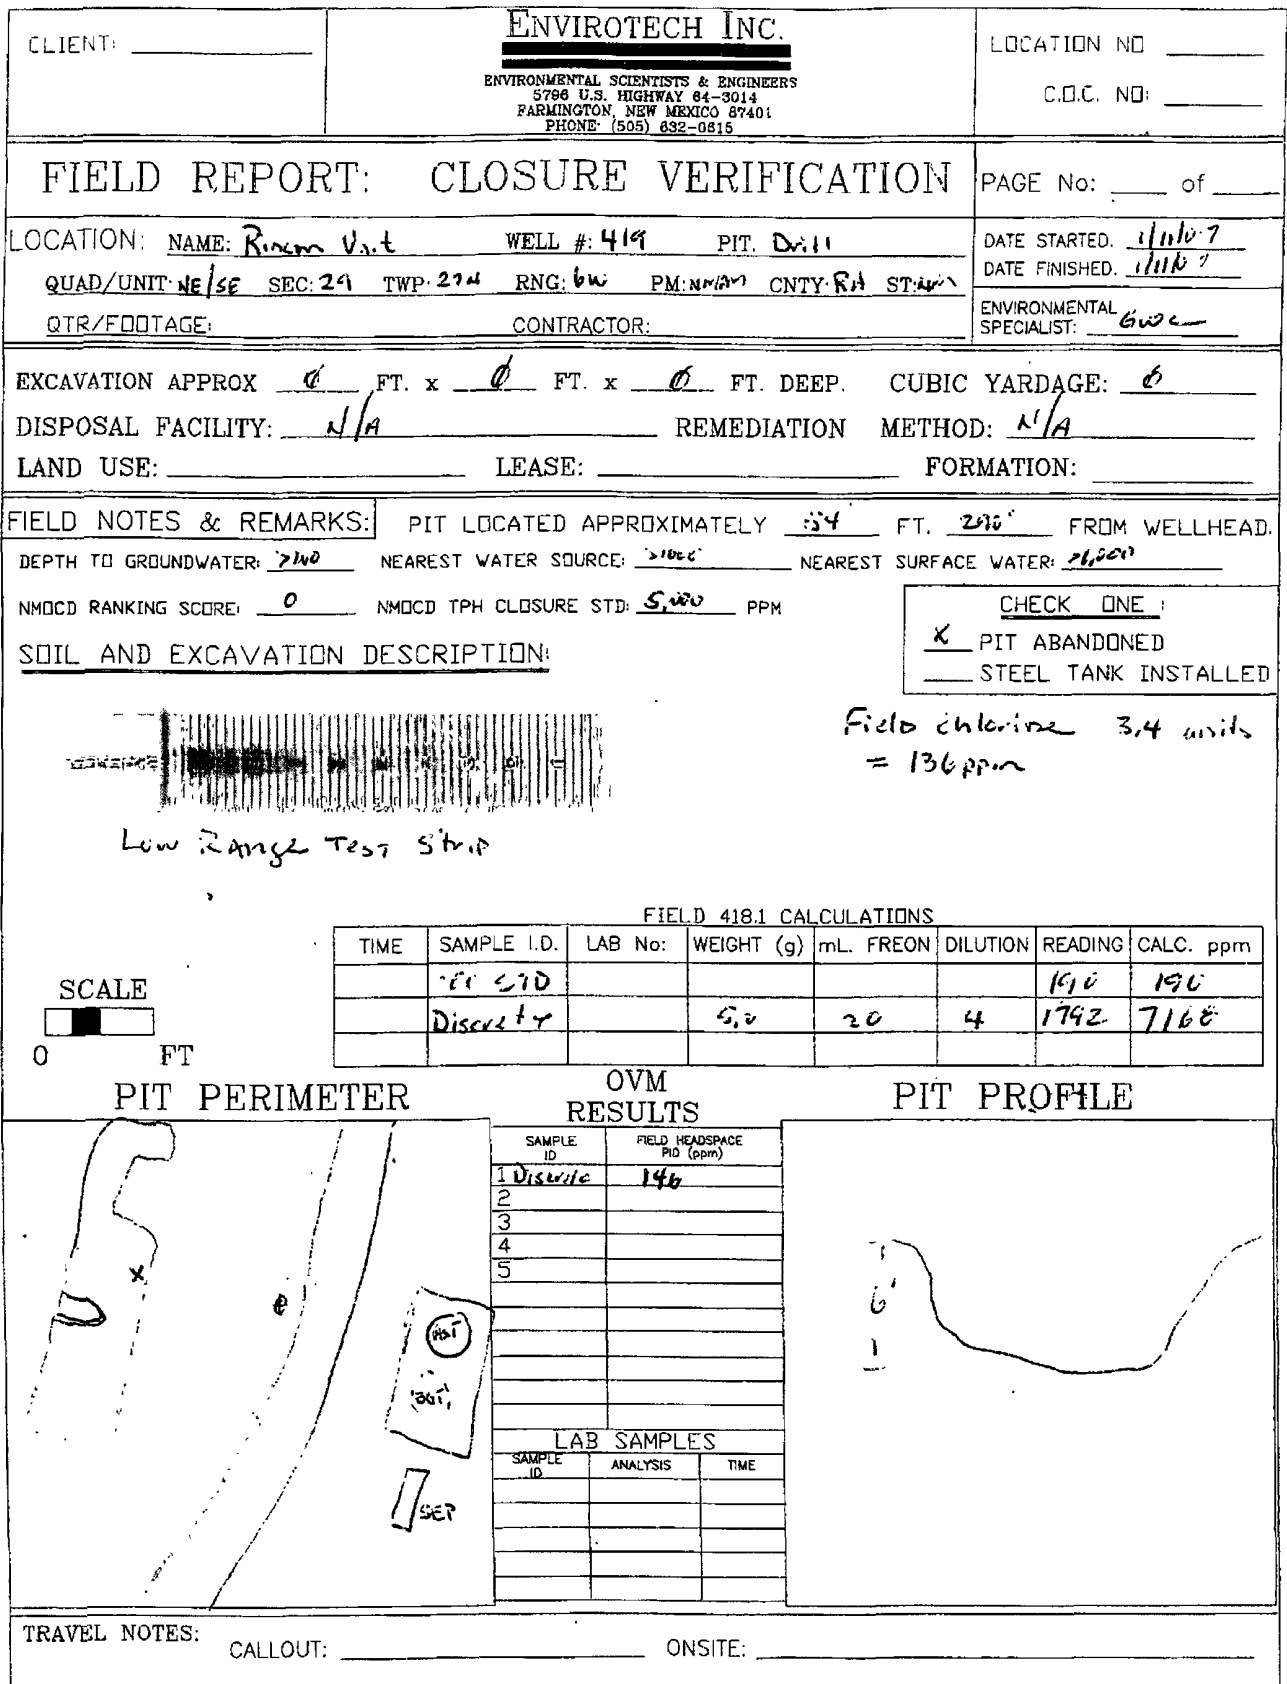 CLIENT:
ENVIROTECH INC.
ENVIRONMENTAL SCIENTISTS & ENGINEERS
5796 U.S. HIGHWAY 64-3014
FARMINGTON, NEW MEXICO 87401
PHONE: (505) 632-0615
LOCATION NO
C.O.C. NO:
FIELD REPORT: CLOSURE VERIFICATION
PAGE No: of
LOCATION: NAME: Rincon Unit WELL #: 419 PIT. Drill
DATE STARTED. 1/11/07
DATE FINISHED. 1/11/07
QUAD/UNIT: NE/SE SEC: 29 TWP: 27N RNG: 6W PM: NMPM CNTY: RA ST: NM
QTR/FOOTAGE: CONTRACTOR:
ENVIRONMENTAL SPECIALIST: GWC
EXCAVATION APPROX 0 FT. x 0 FT. x 0 FT. DEEP. CUBIC YARDAGE: 0
DISPOSAL FACILITY: N/A REMEDIATION METHOD: N/A
LAND USE: LEASE: FORMATION:
FIELD NOTES & REMARKS: PIT LOCATED APPROXIMATELY 54 FT. FROM WELLHEAD.
DEPTH TO GROUNDWATER: >100 NEAREST WATER SOURCE: >1000 NEAREST SURFACE WATER: >1,000
NMOCD RANKING SCORE: 0 NMOCD TPH CLOSURE STD: 5,000 PPM
CHECK ONE :
X PIT ABANDONED
STEEL TANK INSTALLED
SOIL AND EXCAVATION DESCRIPTION:
Field chlorine 3.4 units
= 136 ppm
Low Range Test Strip
FIELD 418.1 CALCULATIONS
TIME SAMPLE I.D. LAB No: WEIGHT (g) mL. FREON DILUTION READING CALC. ppm
STD 190 190
Discrete 5.0 20 4 1792 7168
SCALE
0 FT
PIT PERIMETER
OVM RESULTS
PIT PROFILE
SAMPLE ID FIELD HEADSPACE PID (ppm)
1 Discrete 146
2
3
4
5
X
AST
BGT
SEP
6'
LAB SAMPLES
SAMPLE ID ANALYSIS TIME
TRAVEL NOTES: CALLOUT: ONSITE: